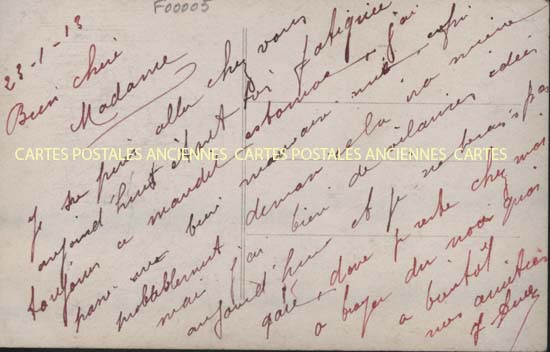 F00005
23-1-13
Bien chère
Madame
Je ne puis aller chez vous
aujourd'hui étant très fatiguée
toujours ce maudit estomac, j'ai
passé une bien mauvaise nuit, enfin
probablement demain cela ira mieux
mais j'ai bien de vilaines idées
aujourd'hui et je ne suis pas
gaie, donc je reste chez moi
a broyer du noir
a bientôt
mes amitiés
CARTES POSTALES ANCIENNES CARTES POSTALES ANCIENNES CARTES